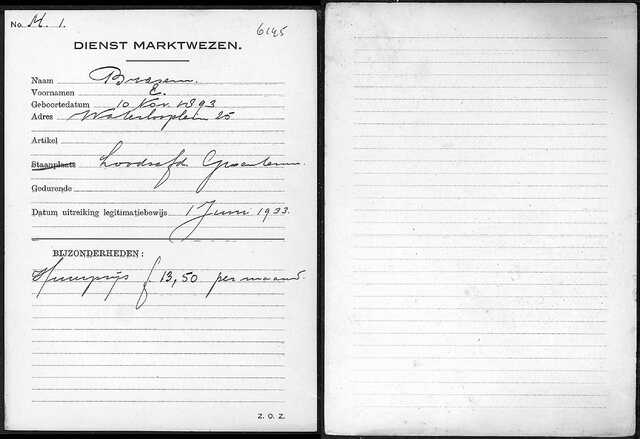 No. M. 1.
6145
DIENST MARKTWEZEN.
Naam Bressem.
Voornamen E.
Geboortedatum 10 Nov. 1893
Adres Waterlooplein 25
Artikel
Staanplaats Loodsafd.
Gedurende
Datum uitreiking legitimatiebewijs 1 Juni 1933.
BIJZONDERHEDEN:
Huurprijs f 13,50 per maand.
Z. O. Z.